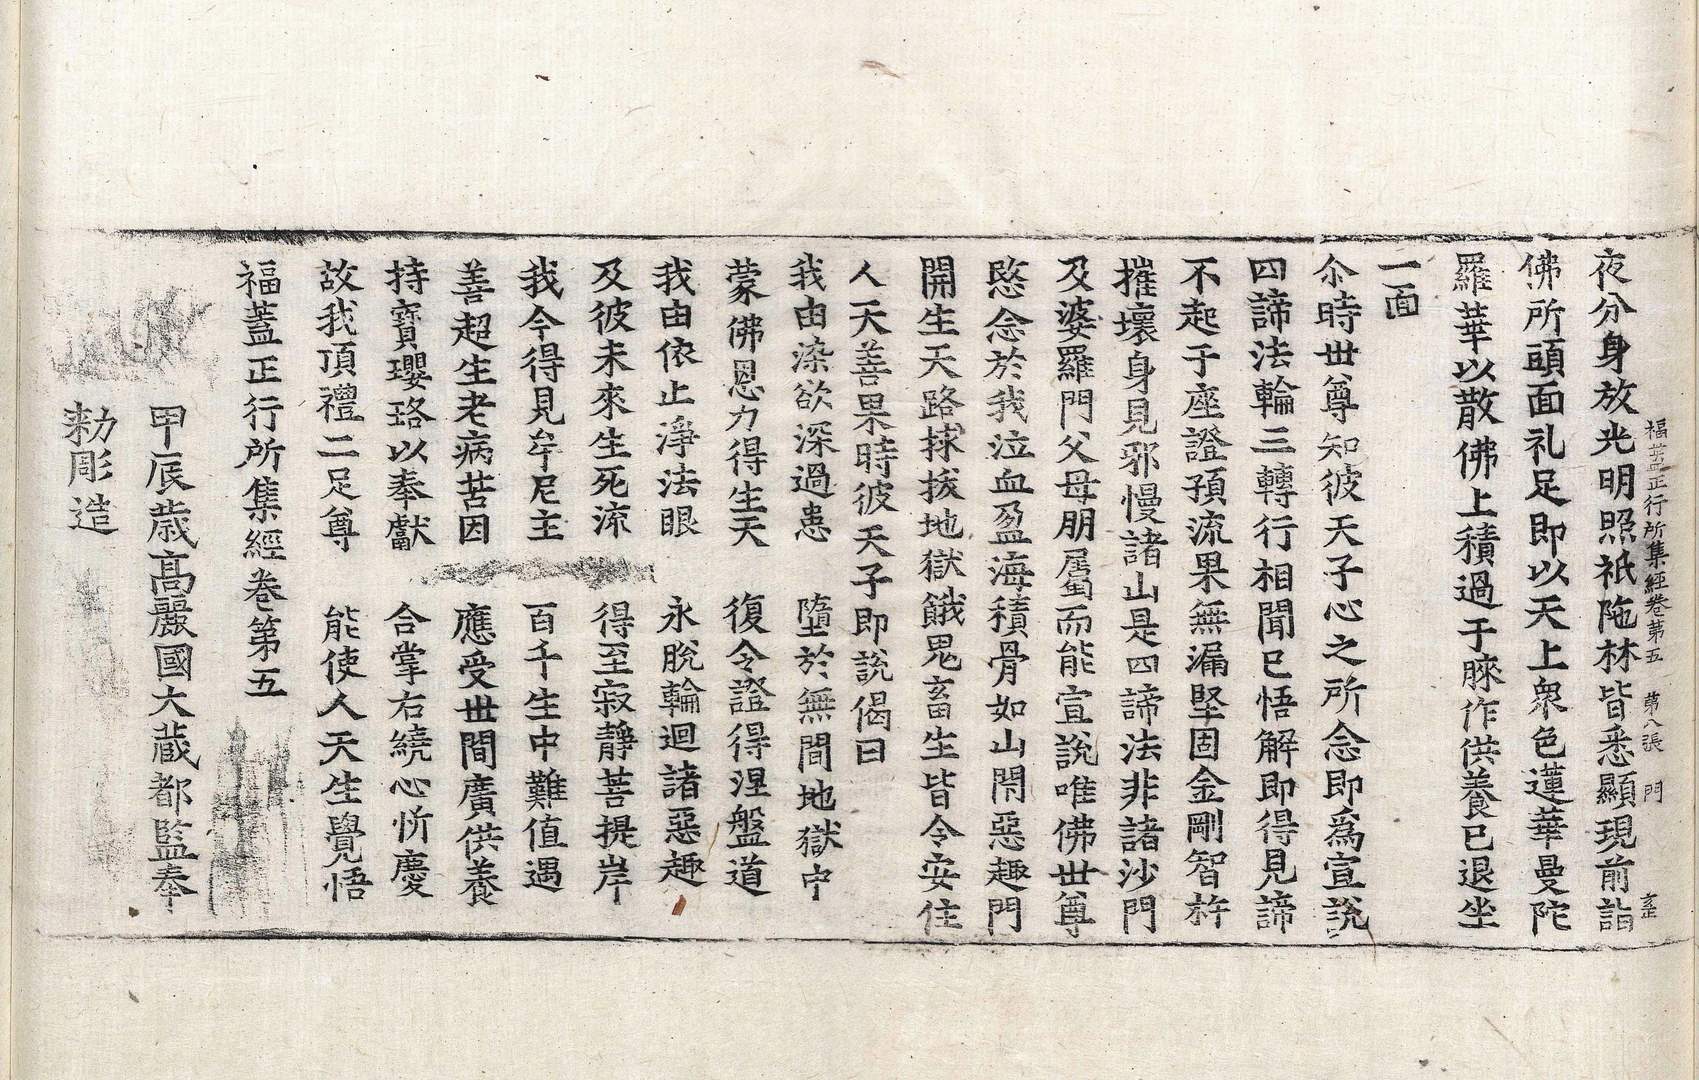 福蓋正行所集經卷第五 第八張 門
夜分身放光明照祇陁林皆悉顯現前詣
佛所頭面礼足即以天上衆色蓮華曼陀
羅華以散佛上積過于膝作供養已退坐
一面
尒時世尊知彼天子心之所念即爲宣說
四諦法輪三轉行相聞已悟解即得見諦
不起于座證預流果無漏堅固金剛智杵
摧壞身見邪慢諸山是四諦法非諸沙門
及婆羅門父母朋屬而能宣說唯佛世尊
愍念於我泣血盈海積骨如山閇惡趣門
開生天路拯拔地獄餓鬼畜生皆令安住
人天善果時彼天子即說偈曰
我由染欲深過患 墮於無間地獄中
蒙佛恩力得生天 復令證得涅盤道
我由依止淨法眼 永脫輪迴諸惡趣
及彼未來生死流 得至寂靜菩提岸
我今得見牟尼主 百千生中難值遇
善超生老病苦因 應受世間廣供養
持寶瓔珞以奉獻 合掌右繞心忻慶
故我頂禮二足尊 能使人天生覺悟
福蓋正行所集經卷第五
甲辰歲高麗國大藏都監奉
勑彫造